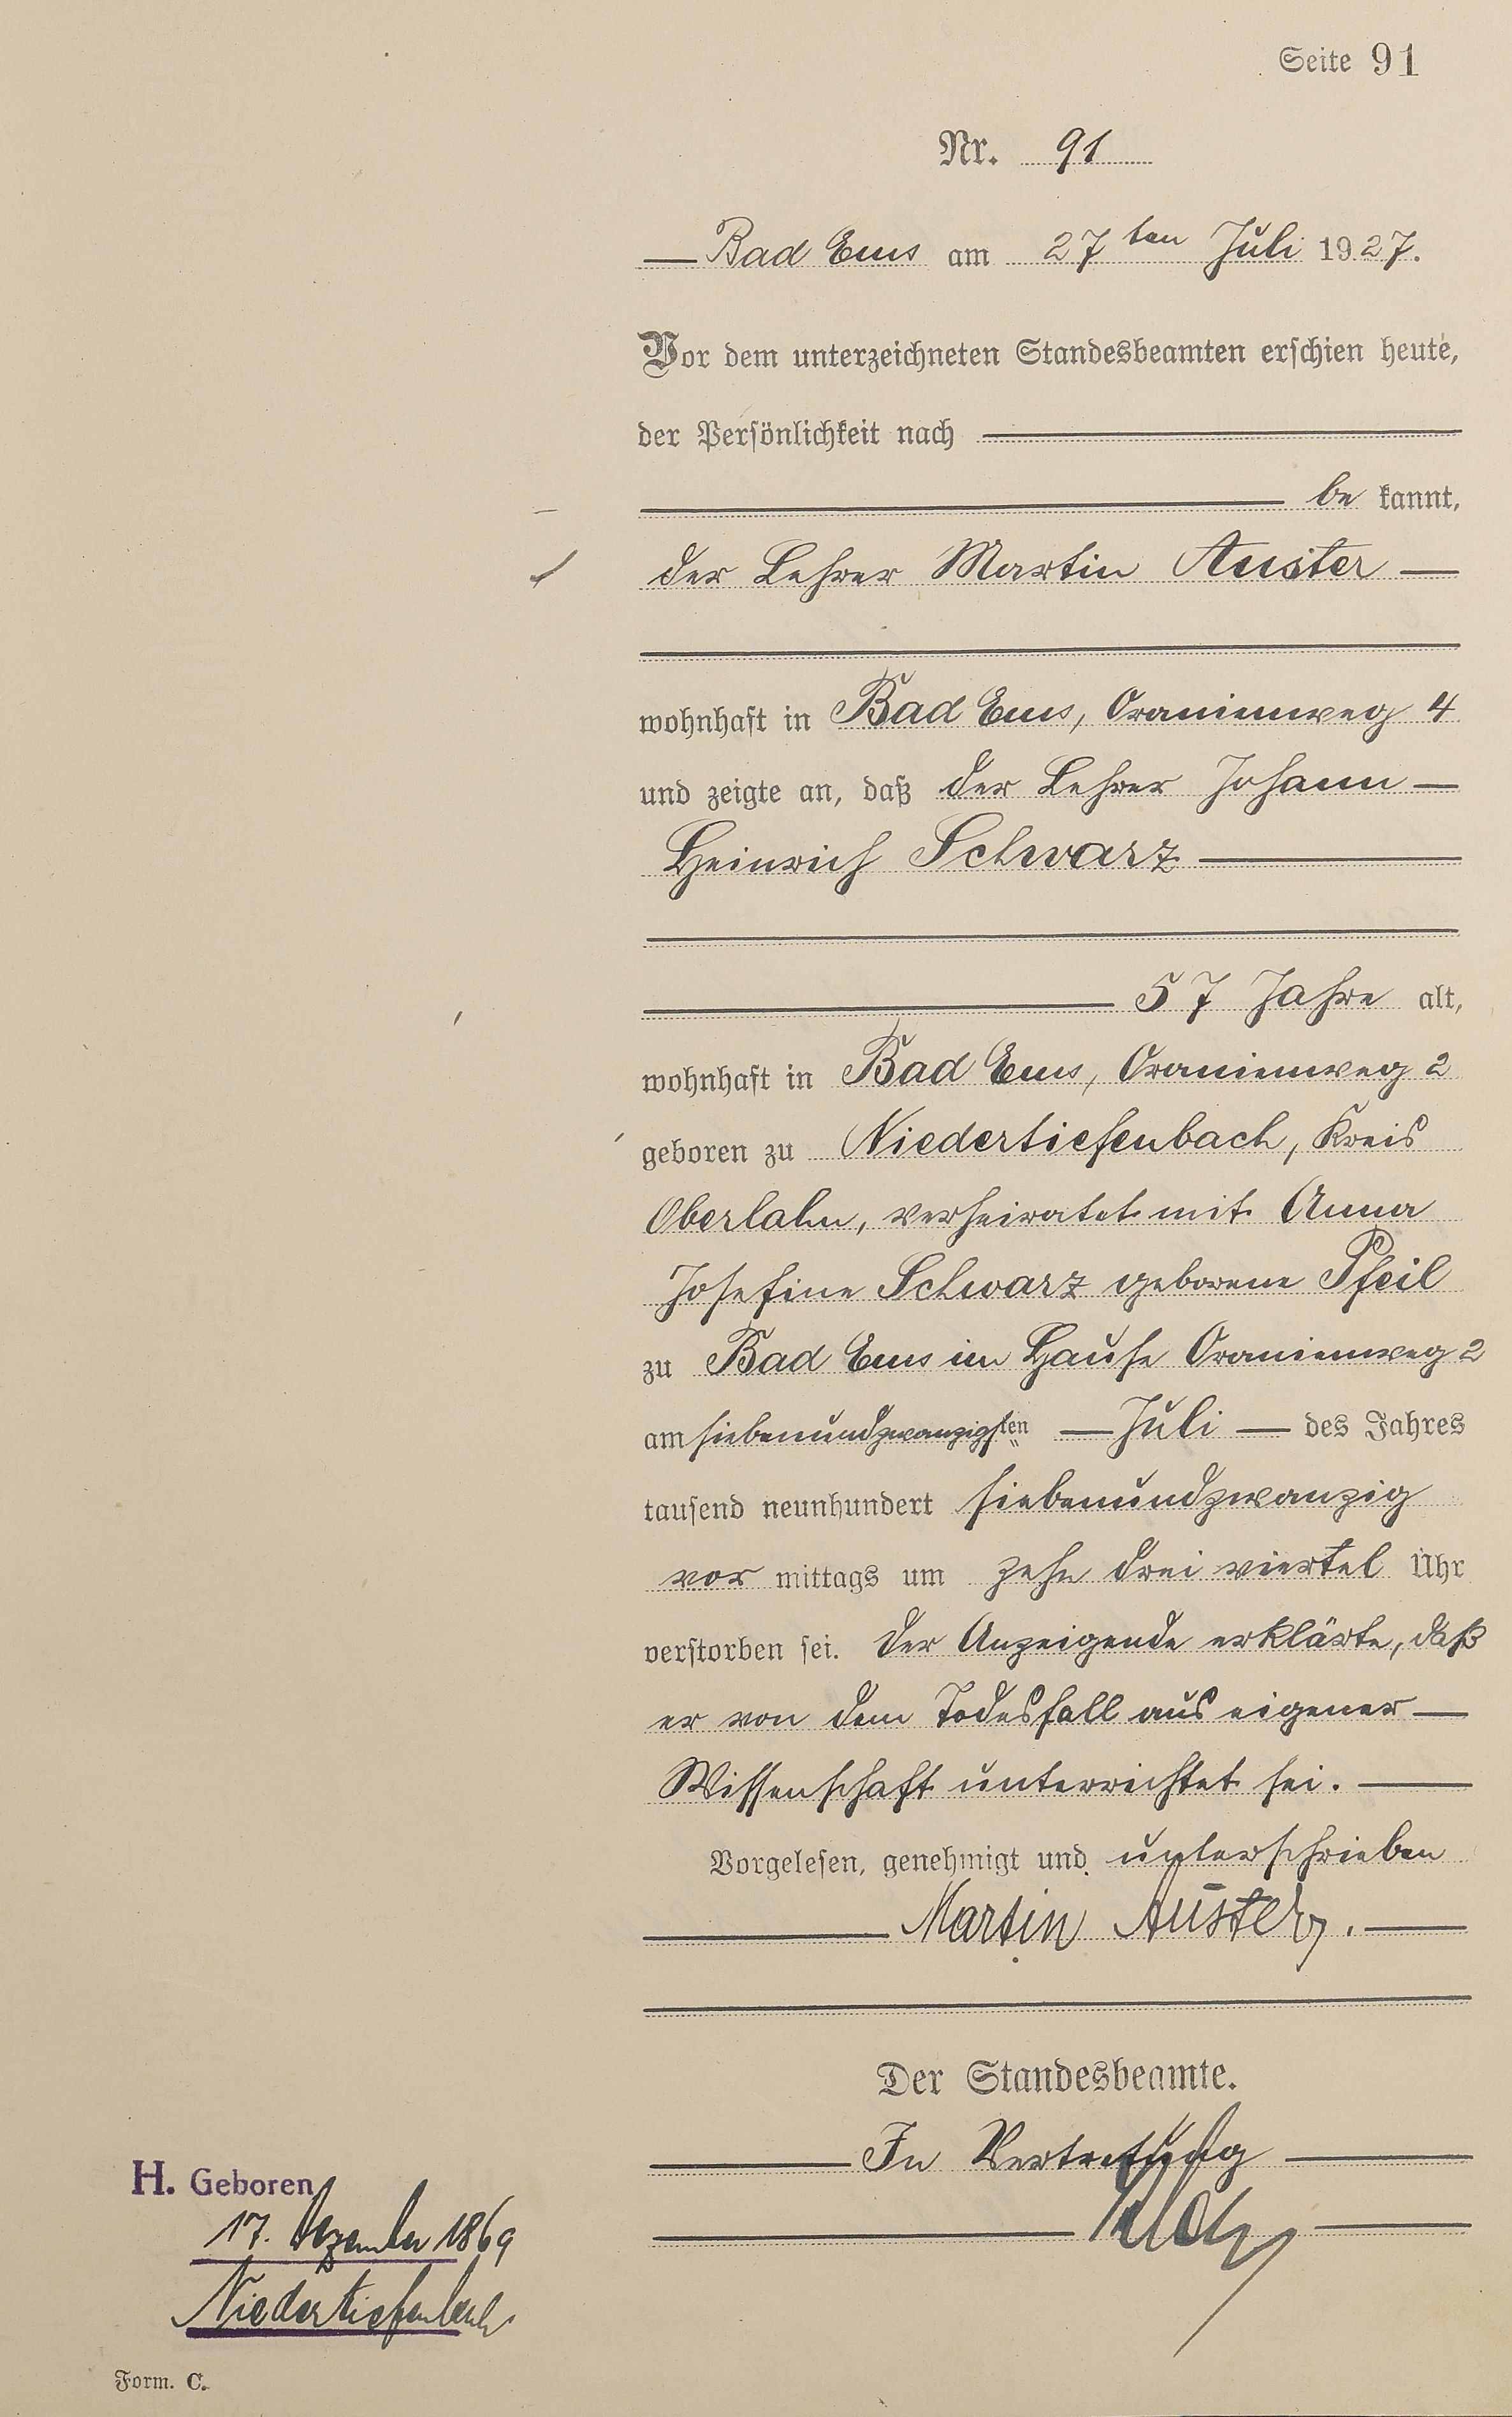 Seite 91
Nr. 91
Bad Ems am 27ten Juli 1927.
Vor dem unterzeichneten Standesbeamten erschien heute,
der Persönlichkeit nach
be kannt,
der Lehrer Martin Auster
wohnhaft in Bad Ems, Oranienweg 4
und zeigte an, daß der Lehrer Johann
Heinrich Schwarz
57 Jahre alt,
wohnhaft in Bad Ems, Oranienweg 2
geboren zu Niedertiefenbach, Kreis
Oberlahn, verheiratet mit Anna
Josefine Schwarz geborene Pfeil
zu Bad Ems im Hause Oranienweg 2
am siebenundzwanzigsten Juli des Jahres
tausend neunhundert siebenundzwanzig
vor mittags um zehn drei viertel Uhr
verstorben sei. Der Anzeigende erklärte, daß
er von dem Todesfall aus eigener
Wissenschaft unterrichtet sei.
Vorgelesen, genehmigt und unterschrieben
Martin Auster.
Der Standesbeamte.
In Vertretung
H. Geboren
17. Dezember 1869
Niedertiefenbach
Form. C.